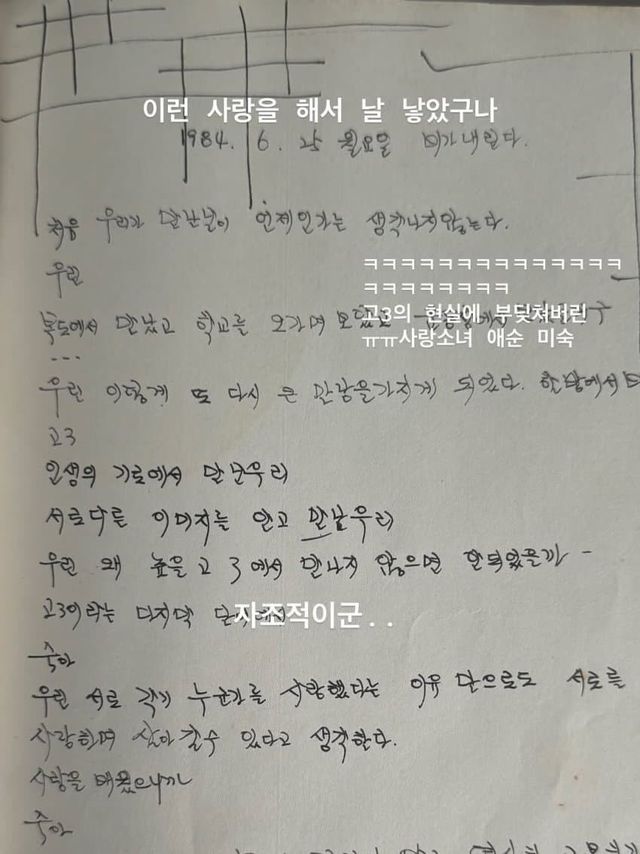 이런 사랑을 해서 날 낳았구나
1984. 6. 25 월요일 비가 내린다.
처음 우리가 만난날이 언제인가는 생각나지않는다.
우린
ㅋㅋㅋㅋㅋㅋㅋㅋㅋㅋㅋㅋㅋㅋ
ㅋㅋㅋㅋㅋㅋㅋㅋ
고3의 현실에 부딪쳐버린
ㅠㅠ사랑소녀 애순 미숙
복도에서 만났고 학교를 오가며
...
우린 이렇게 또 다시 큰 만남을가지게 되었다. 한반에서
고3
인생의 기로에서 만난우리
서로다른 이미지를 안고 만난우리
우린 왜 높은 고3에서 만나지 않으면 안되었을까 -
고3이라는
자조적이군..
숙아
우린 서로 각기 누군가를 사랑했다는 이유 만으로도 서로를
사랑하며 살아 갈수 있다고 생각한다.
사랑을 배웠으니까
숙아